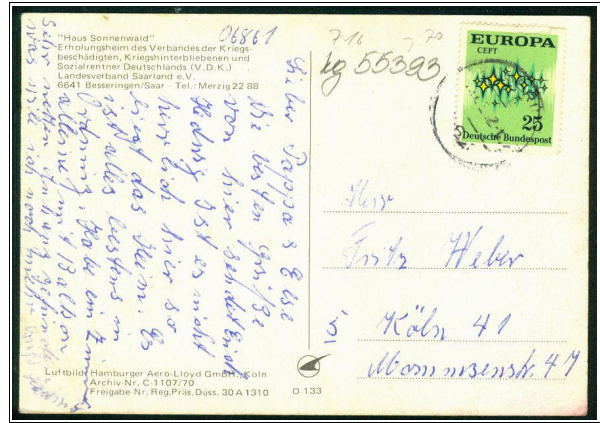 "Haus Sonnenwald"
Erholungsheim des Verbandes der Kriegs-
beschädigten, Kriegshinterbliebenen und
Sozialrentner Deutschlands (V.D.K.)
Landesverband Saarland e.V.
6641 Besseringen/Saar · Tel.: Merzig 22 88
06861
716
70
kg 55393
EUROPA
CEPT
25
Deutsche Bundespost
Lieber Pappa & Else
Die besten Grüße
von hier sendet Euch
Hedwig. Ist es nicht
herrlich hier so
liegt das Heim. Es
ist alles bestens in
Ordnung. Habe ein Zimmer
alleine mit Balkon
Sehr netten
was will ich noch mehr
Herr
Fritz Weber
5 Köln 41
Mommsenstr. 47
Luftbild: Hamburger Aero-Lloyd GmbH., Köln
Archiv-Nr. C-1107/70
Freigabe Nr. Reg. Präs. Düss. 30 A 1310
O 133